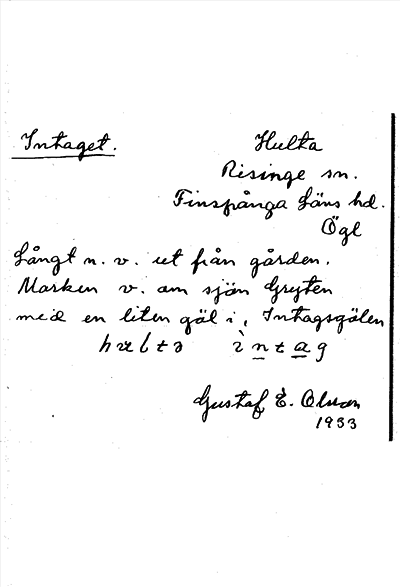 Intaget.
Hulta
Risinge sn.
Finspånga Läns hd.
Ögl
Långt n. v. ut från gården.
Marken v. om sjön Gryten
med en liten göl i, Intagsgölen
hultə ìntag
Gustaf E. Olsson
1933